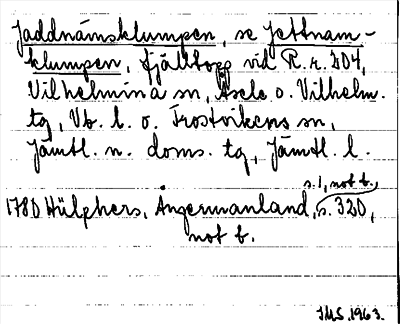 Jaddnämsklumpen, se Jettnam-
klumpen, fjälltopp vid R.r. 204,
Vilhelmina sn, Åsele o. Vilhelm.
tg, Vb. l. o. Frostvikens sn,
Jämtl. n. doms. tg, Jämtl. l.
s. 1, not b.,
1780 Hülphers, Ångermanland, s. 320,
not b.
IMS. 1963.